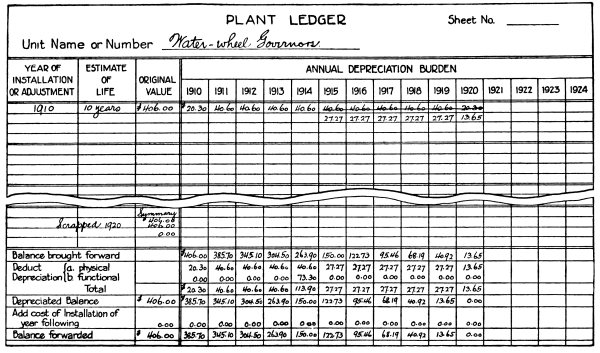 PLANT LEDGER Sheet No.
Unit Name or Number Water-wheel Governors
YEAR OF INSTALLATION OR ADJUSTMENT ESTIMATE OF LIFE ORIGINAL VALUE ANNUAL DEPRECIATION BURDEN
1910 1911 1912 1913 1914 1915 1916 1917 1918 1919 1920 1921 1922 1923 1924
1910 10 years $406.00 $20.30 40.60 40.60 40.60 40.60 40.60 40.60 40.60 40.60 40.60 20.30
27.27 27.27 27.27 27.27 27.27 13.65
Summary
406.00
Scrapped 1920 406.00
0.00
Balance brought forward $406.00 385.70 345.10 304.50 263.90 150.00 122.73 95.46 68.19 40.92 13.65
Deduct {a. physical 20.30 40.60 40.60 40.60 40.60 27.27 27.27 27.27 27.27 27.27 13.65
Depreciation {b functional 0.00 0.00 0.00 0.00 73.30 0.00 0.00 0.00 0.00 0.00 0.00
Total $20.30 40.60 40.60 40.60 113.90 27.27 27.27 27.27 27.27 27.27 13.65
Depreciated Balance $406.00 $385.70 345.10 304.50 263.90 150.00 122.73 95.46 68.19 40.92 13.65 0.00
Add cost of Installation of
year following 0.00 0.00 0.00 0.00 0.00 0.00 0.00 0.00 0.00 0.00 0.00 0.00
Balance forwarded $406.00 385.70 345.10 304.50 263.90 150.00 122.73 95.46 68.19 40.92 13.65 0.00